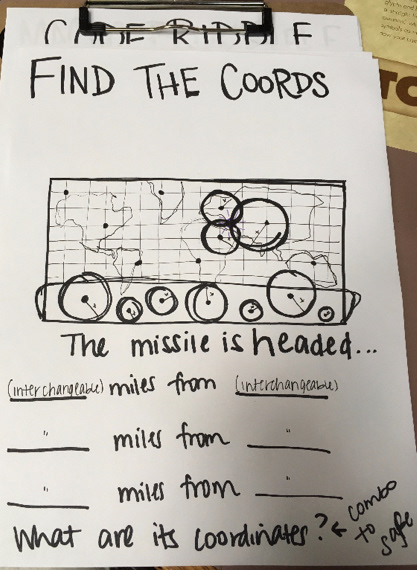 CODE RIDDLE
FIND THE COORDS
The missile is headed...
(interchangeable) miles from (interchangeable)
" miles from "
" miles from "
What are its coordinates? ← combo to safe